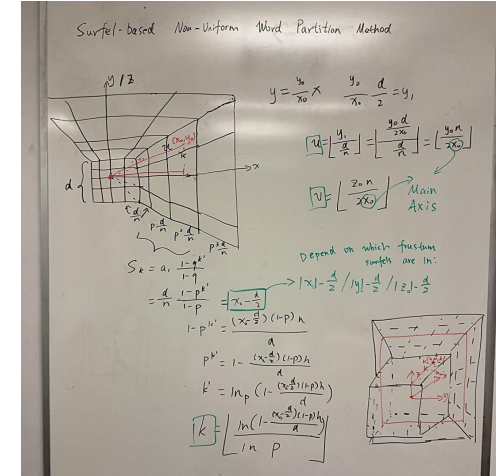 Surfel-based Non-Uniform Word Partition Method
y/z
y = y₀/x₀ x    y₀/x₀ · d/2 = y₁
(x₀, y₀)
x
d
d/n  p·d/n  p²·d/n
u = ⌊y₁ / (d/n)⌋ = ⌊(y₀d/2x₀) / (d/n)⌋ = ⌊y₀n / 2x₀⌋
v = ⌊z₀n / 2x₀⌋
Main
Axis
Depend on which frustum
surfels are in:
|x| - d/2 / |y| - d/2 / |z| - d/2
Sₖ = a₁ (1-qᵏ')/(1-q)
= d/n · (1-pᵏ')/(1-p) = x₀ - d/2
1-pᵏ' = (x₀ - d/2)(1-p)n / d
pᵏ' = 1 - (x₀ - d/2)(1-p)n / d
k' = lnₚ(1 - (x₀ - d/2)(1-p)n / d)
k = ⌊ln(1 - (x₀ - d/2)(1-p)n / d) / ln p⌋